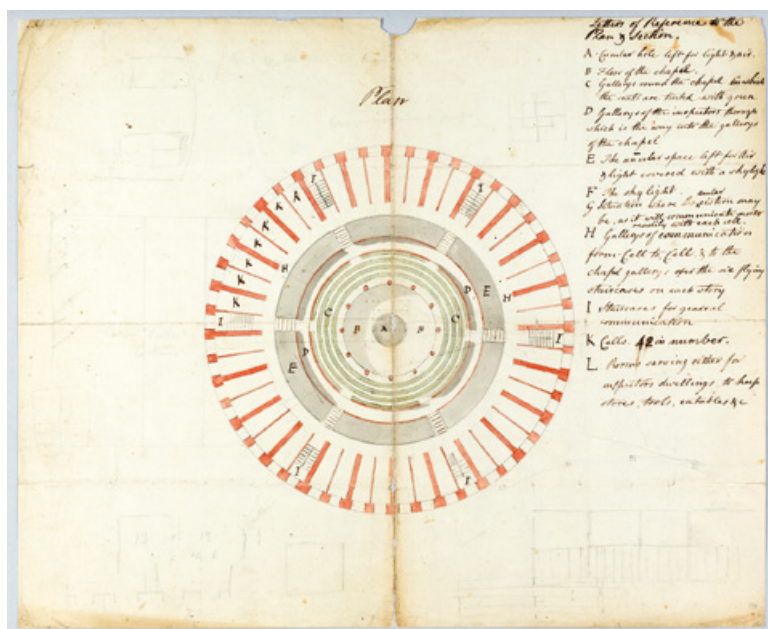 Plan
Letters of Reference to the
Plan & Section.
A Circular hole left for light & air.
B Floor of the chapel.
C Gallerys round the chapel in which
the seats are tinted with green
D Gallerys of the inspectors through
which is the way into the gallerys
of the chapel
E The annular space left for Air
& light covered with a skylight
F The sky light.
G Situation where section may
be, as it will communicate
with each cell.
H Gallerys of communication
from Cell to Cell, & to the
chapel gallerys over the six flying
staircases on each story
I Staircases for general
communication
K Cells. 42 in number.
L Rooms serving either for
inspectors dwellings, to keep
stores, tools, eatables &c
I
I
K
K
K
K
K
K
K
K
I
H
H
E
D
C
B
A
B
C
I
E
D
I
I